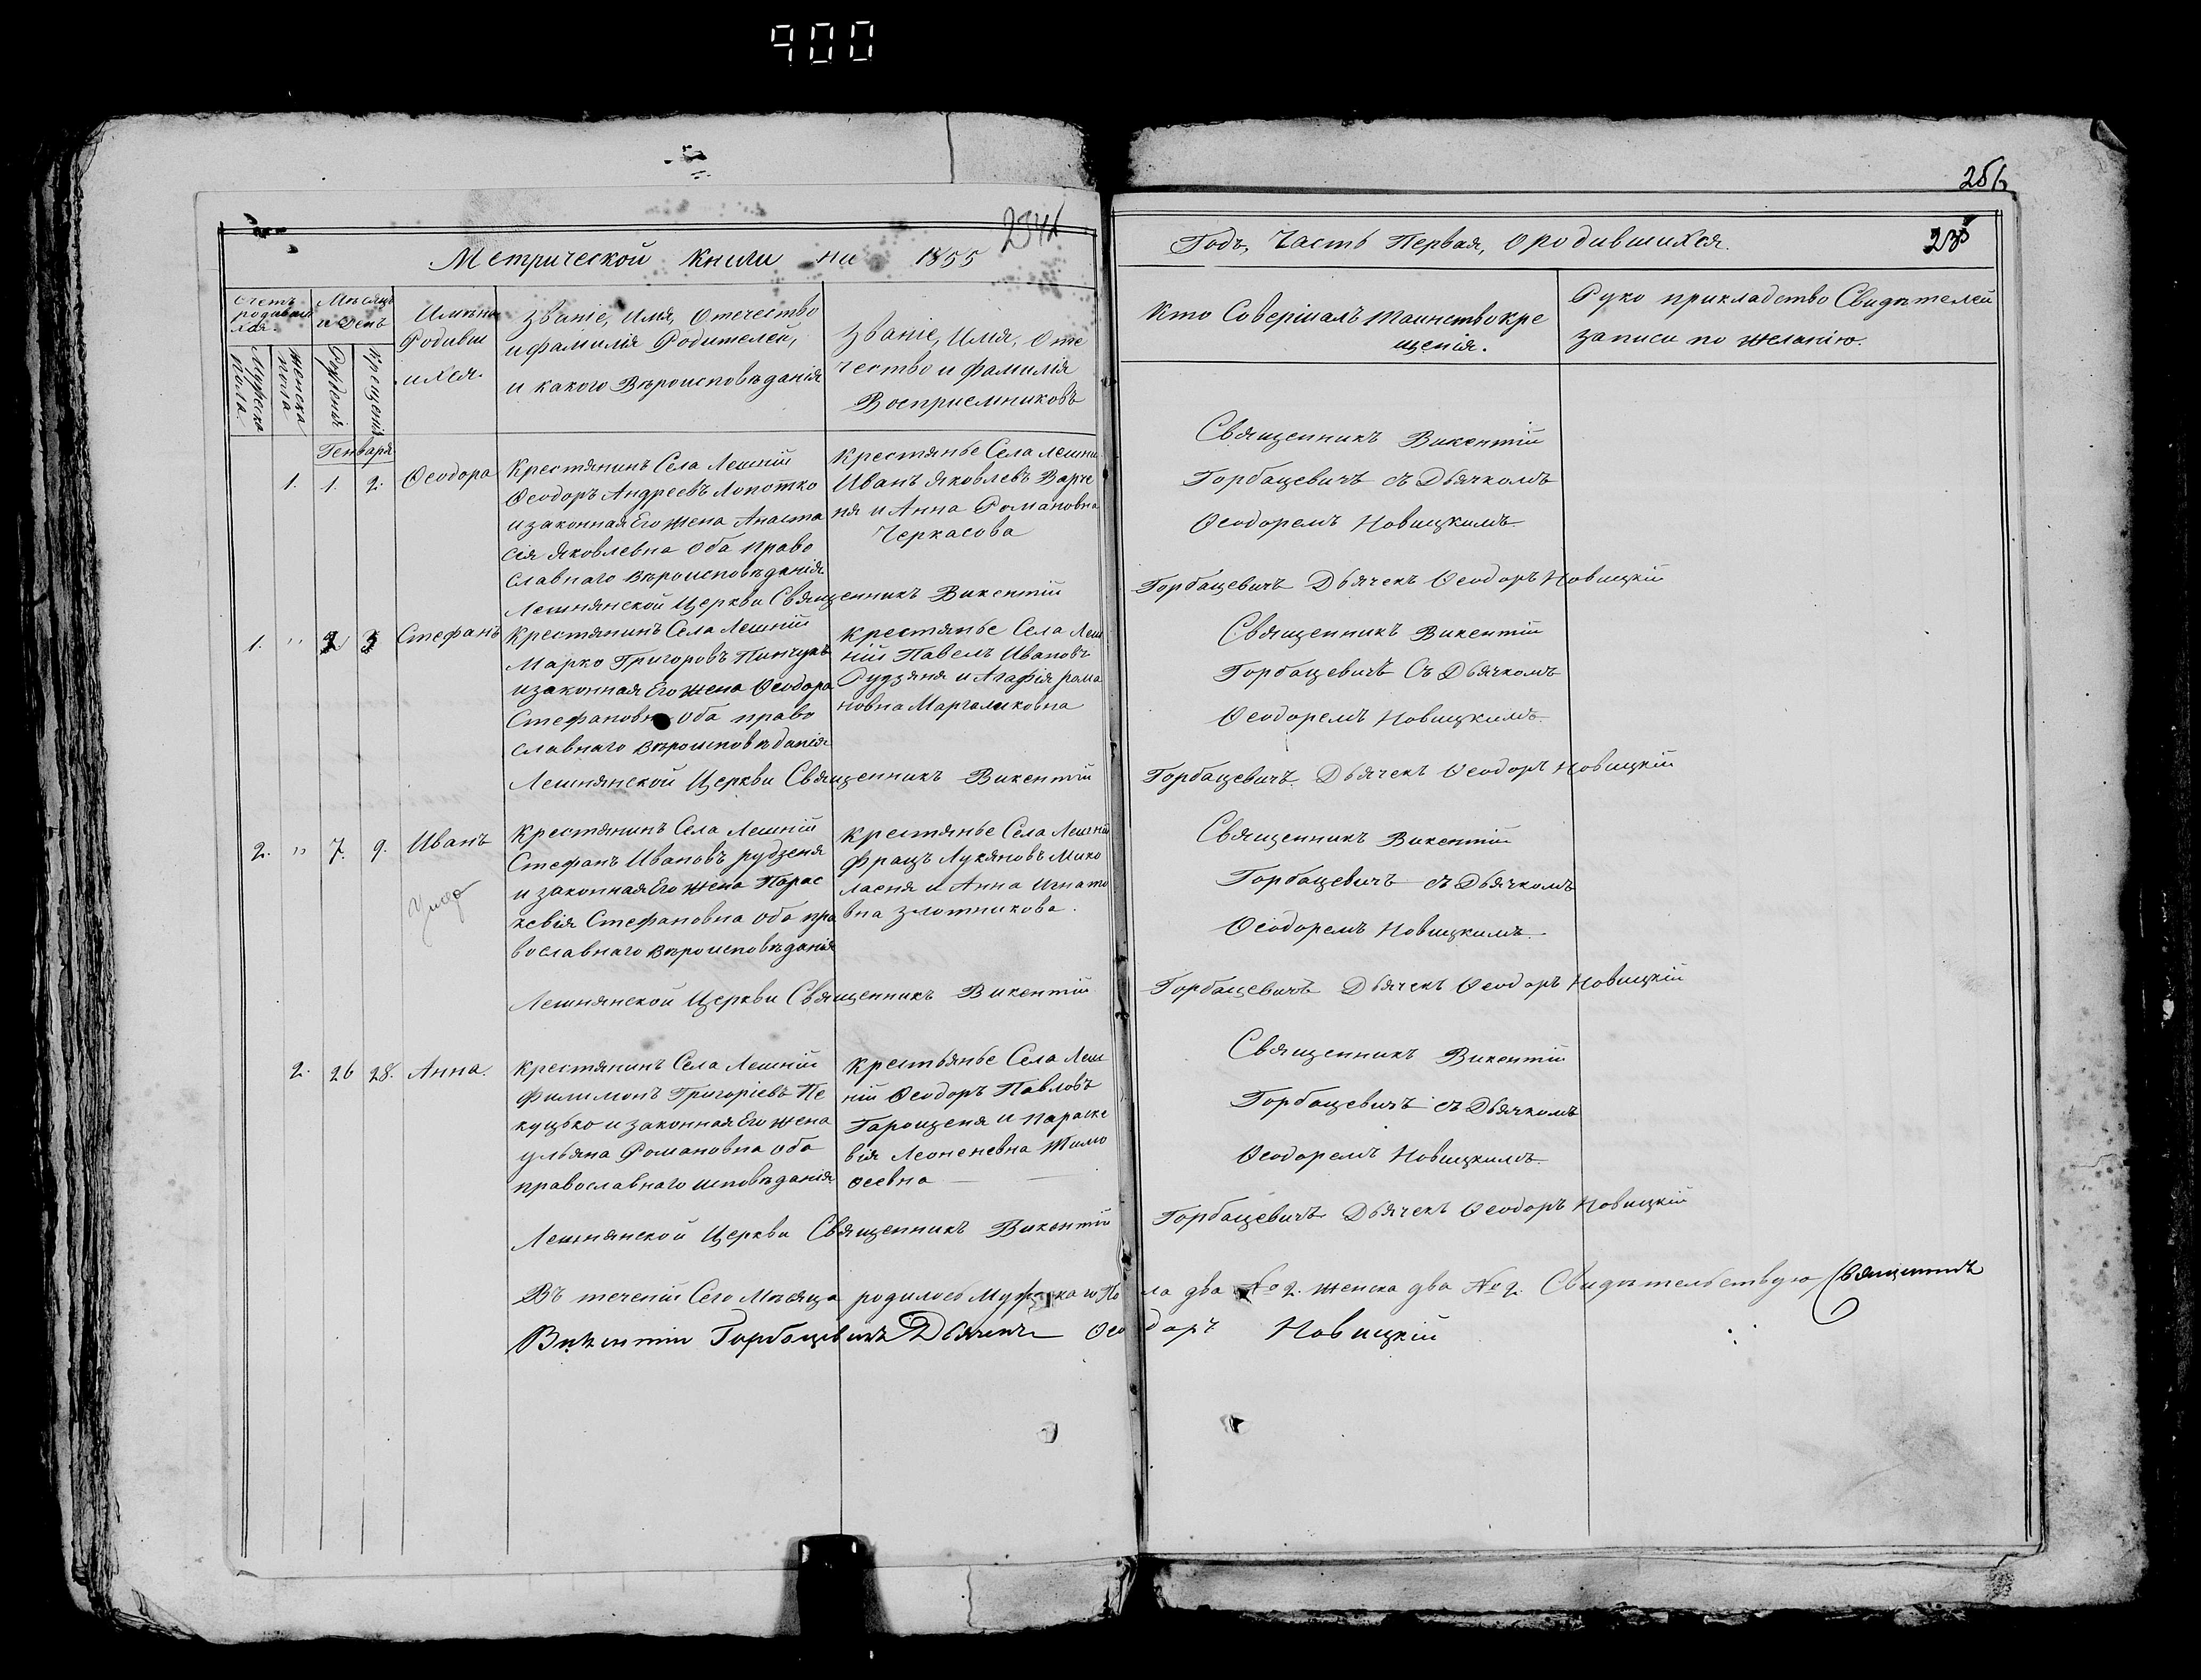 900
256
234
Метрической Книги на 1855
Годъ, Часть Первая, о родившихся.
23
Счетъ родившихся.
Мѣсяцъ и День
Мужеска пола
Женска пола
Рожденія
Крещенія
Имѣна Родившихся.
Званіе, Имя, Отечество
и фамилія Родителей,
и какого Вѣроисповѣданія
Званіе, Имя, Отечество и фамилія
Восприемниковъ
Кто Совершалъ таинство кре
щенія.
Руко прикладство Свидѣтелей
записи по желанію.
Генваря
1. 1. 2. Ѳеодора
Крестянинъ Села Лешній
Ѳеодоръ Андреевъ Лопотко
и законная Его жена Анаста
сія Яковлевна оба Право
славнаго вѣроисповѣданія
Крестянье Села Лешни
Иванъ Яковлевъ Варче
ня и Анна Романовна
Черкасова
Священникъ Викентій
Горбацевичъ съ Дьячкомъ
Ѳеодоремъ Новицкимъ
Лешнянской Церкви Священникъ Викентій Горбацевичъ Дьячекъ Ѳеодоръ Новицкій
1. " 3 Стефанъ
Крестянинъ Села Лешній
Марко Григоровъ
и законная Его жена Ѳеодора
Стефановна оба право
славнаго вѣроисповѣданія
Крестянье Села Леш
ній Павелъ Ивановъ
Рудзяня и Агафія рома
новна Маргаликовна
Священникъ Викентій
Горбацевичъ Съ Дьячкомъ
Ѳеодоремъ Новицкимъ
Лешнянской Церкви Священникъ Викентій Горбацевичъ Дьячекъ Ѳеодоръ Новицкій
2. " 7. 9. Иванъ
Крестянинъ Села Лешній
Стефанъ Ивановъ рудзеня
и законная Его жена Парас
кевія Стефановна оба пра
вославнаго вѣроисповѣданія
Крестянье Села Лешній
Францъ Лукяновъ Мико
ласня и Анна Игнато
вна злотникова.
Священникъ Викентій
Горбацевичъ съ Дьячкомъ
Ѳеодоремъ Новицкимъ
Лешнянской Церкви Священникъ Викентій Горбацевичъ Дьячекъ Ѳеодоръ Новицкій
2. 26 28. Анна.
Крестянинъ Села Лешній
Филимонъ Григоріевъ Пе
куцько и законная Его жена
ульяна Романовна оба
православнаго исповѣданія
Крестьянье Села Леш
ній Ѳеодоръ Павловъ
Гарощеня и Параске
вія Леоненевна Жимо
ѳеевна
Священникъ Викентій
Горбацевичъ съ Дьячкомъ
Ѳеодоремъ Новицкимъ
Лешнянской Церкви Священникъ Викентій Горбацевичъ Дьячекъ Ѳеодоръ Новицкій
Въ теченіи Сего Мѣсяца родилось Мужска го Пола два № 2. женска два № 2. Свидѣтельствую Священникъ
Викентій Горбацевичъ Дьячекъ Ѳеодоръ Новицкій